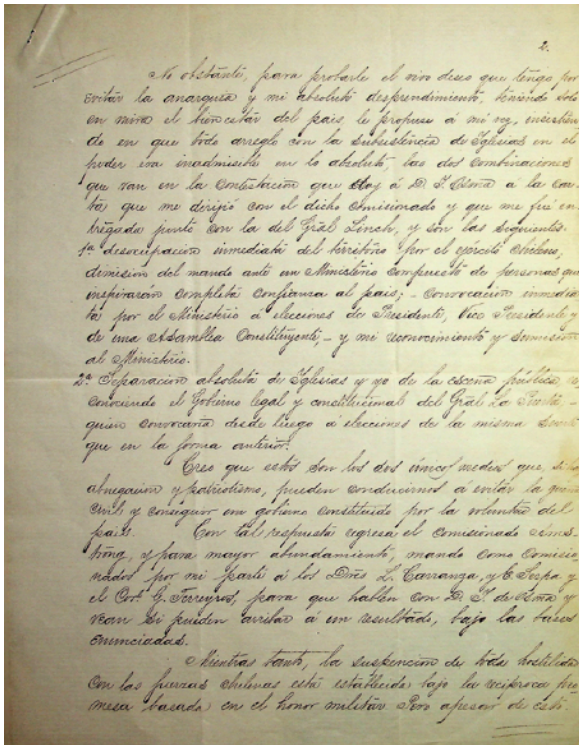 2.
No obstante, para probarle el vivo deseo que tengo por
evitar la anarquia y mi absoluto desprendimiento, teniendo solo
en mira el bienestar del pais, le propuse á mi vez, insistien-
do en que todo arreglo con la subsistencia de Iglesias en el
poder era inadmisible en lo absoluto, las dos combinaciones
que van en la contestacion que doy á D. I. Osma á la car-
ta que me dirijió con el dicho Comisionado y que me fué en-
tregada junto con la del Gral Linch, y son las siguientes.
1ª desocupacion inmediata del territorio por el ejército chileno;
dimision del mando ante un Ministerio compuesto de personas que
inspirarán completa confianza al pais; - convocacion inmedia-
ta por el Ministerio á elecciones de Presidente, Vice Presidente y
de una Asamblea Constituyente, - y mi reconocimiento y sumision
al Ministerio.
2ª Separacion absoluta de Iglesias y yo de la escena pública, re-
conociendo el Gobierno legal y constitucional del Gral La Puerta -
quien convocaria desde luego á elecciones de la misma suerte
que en la forma anterior.
Creo que estos son los dos únicos medios que, si hay
abnegacion y patriotismo, pueden conducirnos á evitar la guerra
civil y conseguir un gobierno constituido por la voluntad del
pais.
Con tal respuesta regresa el comisionado Arms-
trong, y para mayor abundamiento, mando como comisio-
nados por mi parte á los Dres L. Carranza, y E.
el Cor. G. Ferreyros, para que hablen con D. I. de Osma y
vean si pueden arribar á un resultado, bajo las bases
enunciadas.
Mientras tanto, la suspencion de toda hostilidad
con las fuerzas chilenas está establecida bajo la reciproca pro-
mesa basada en el honor militar. Pero apesar de esto